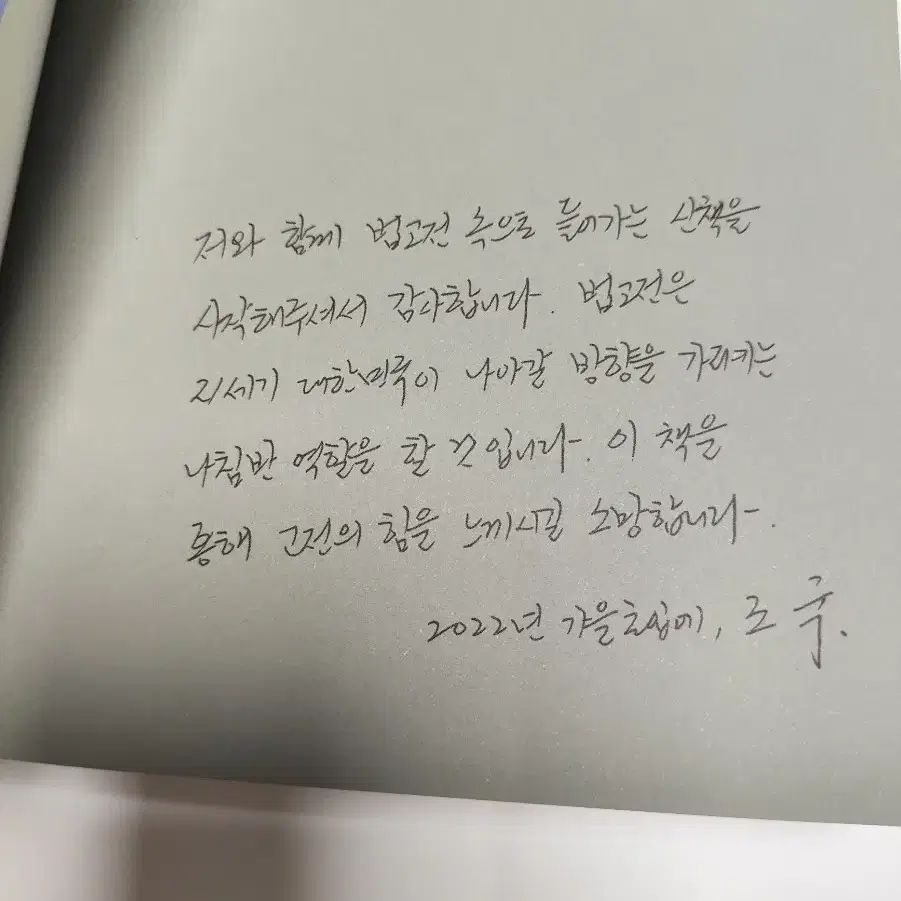 저와 함께 법고전 속으로 들어가는 산책을
시작해주셔서 감사합니다. 법고전은
21세기 대한민국이 나아갈 방향을 가리키는
나침반 역할을 할 것입니다. 이 책을
통해 고전의 힘을 느끼시길 소망합니다.
2022년 가을초입에, 조 국.